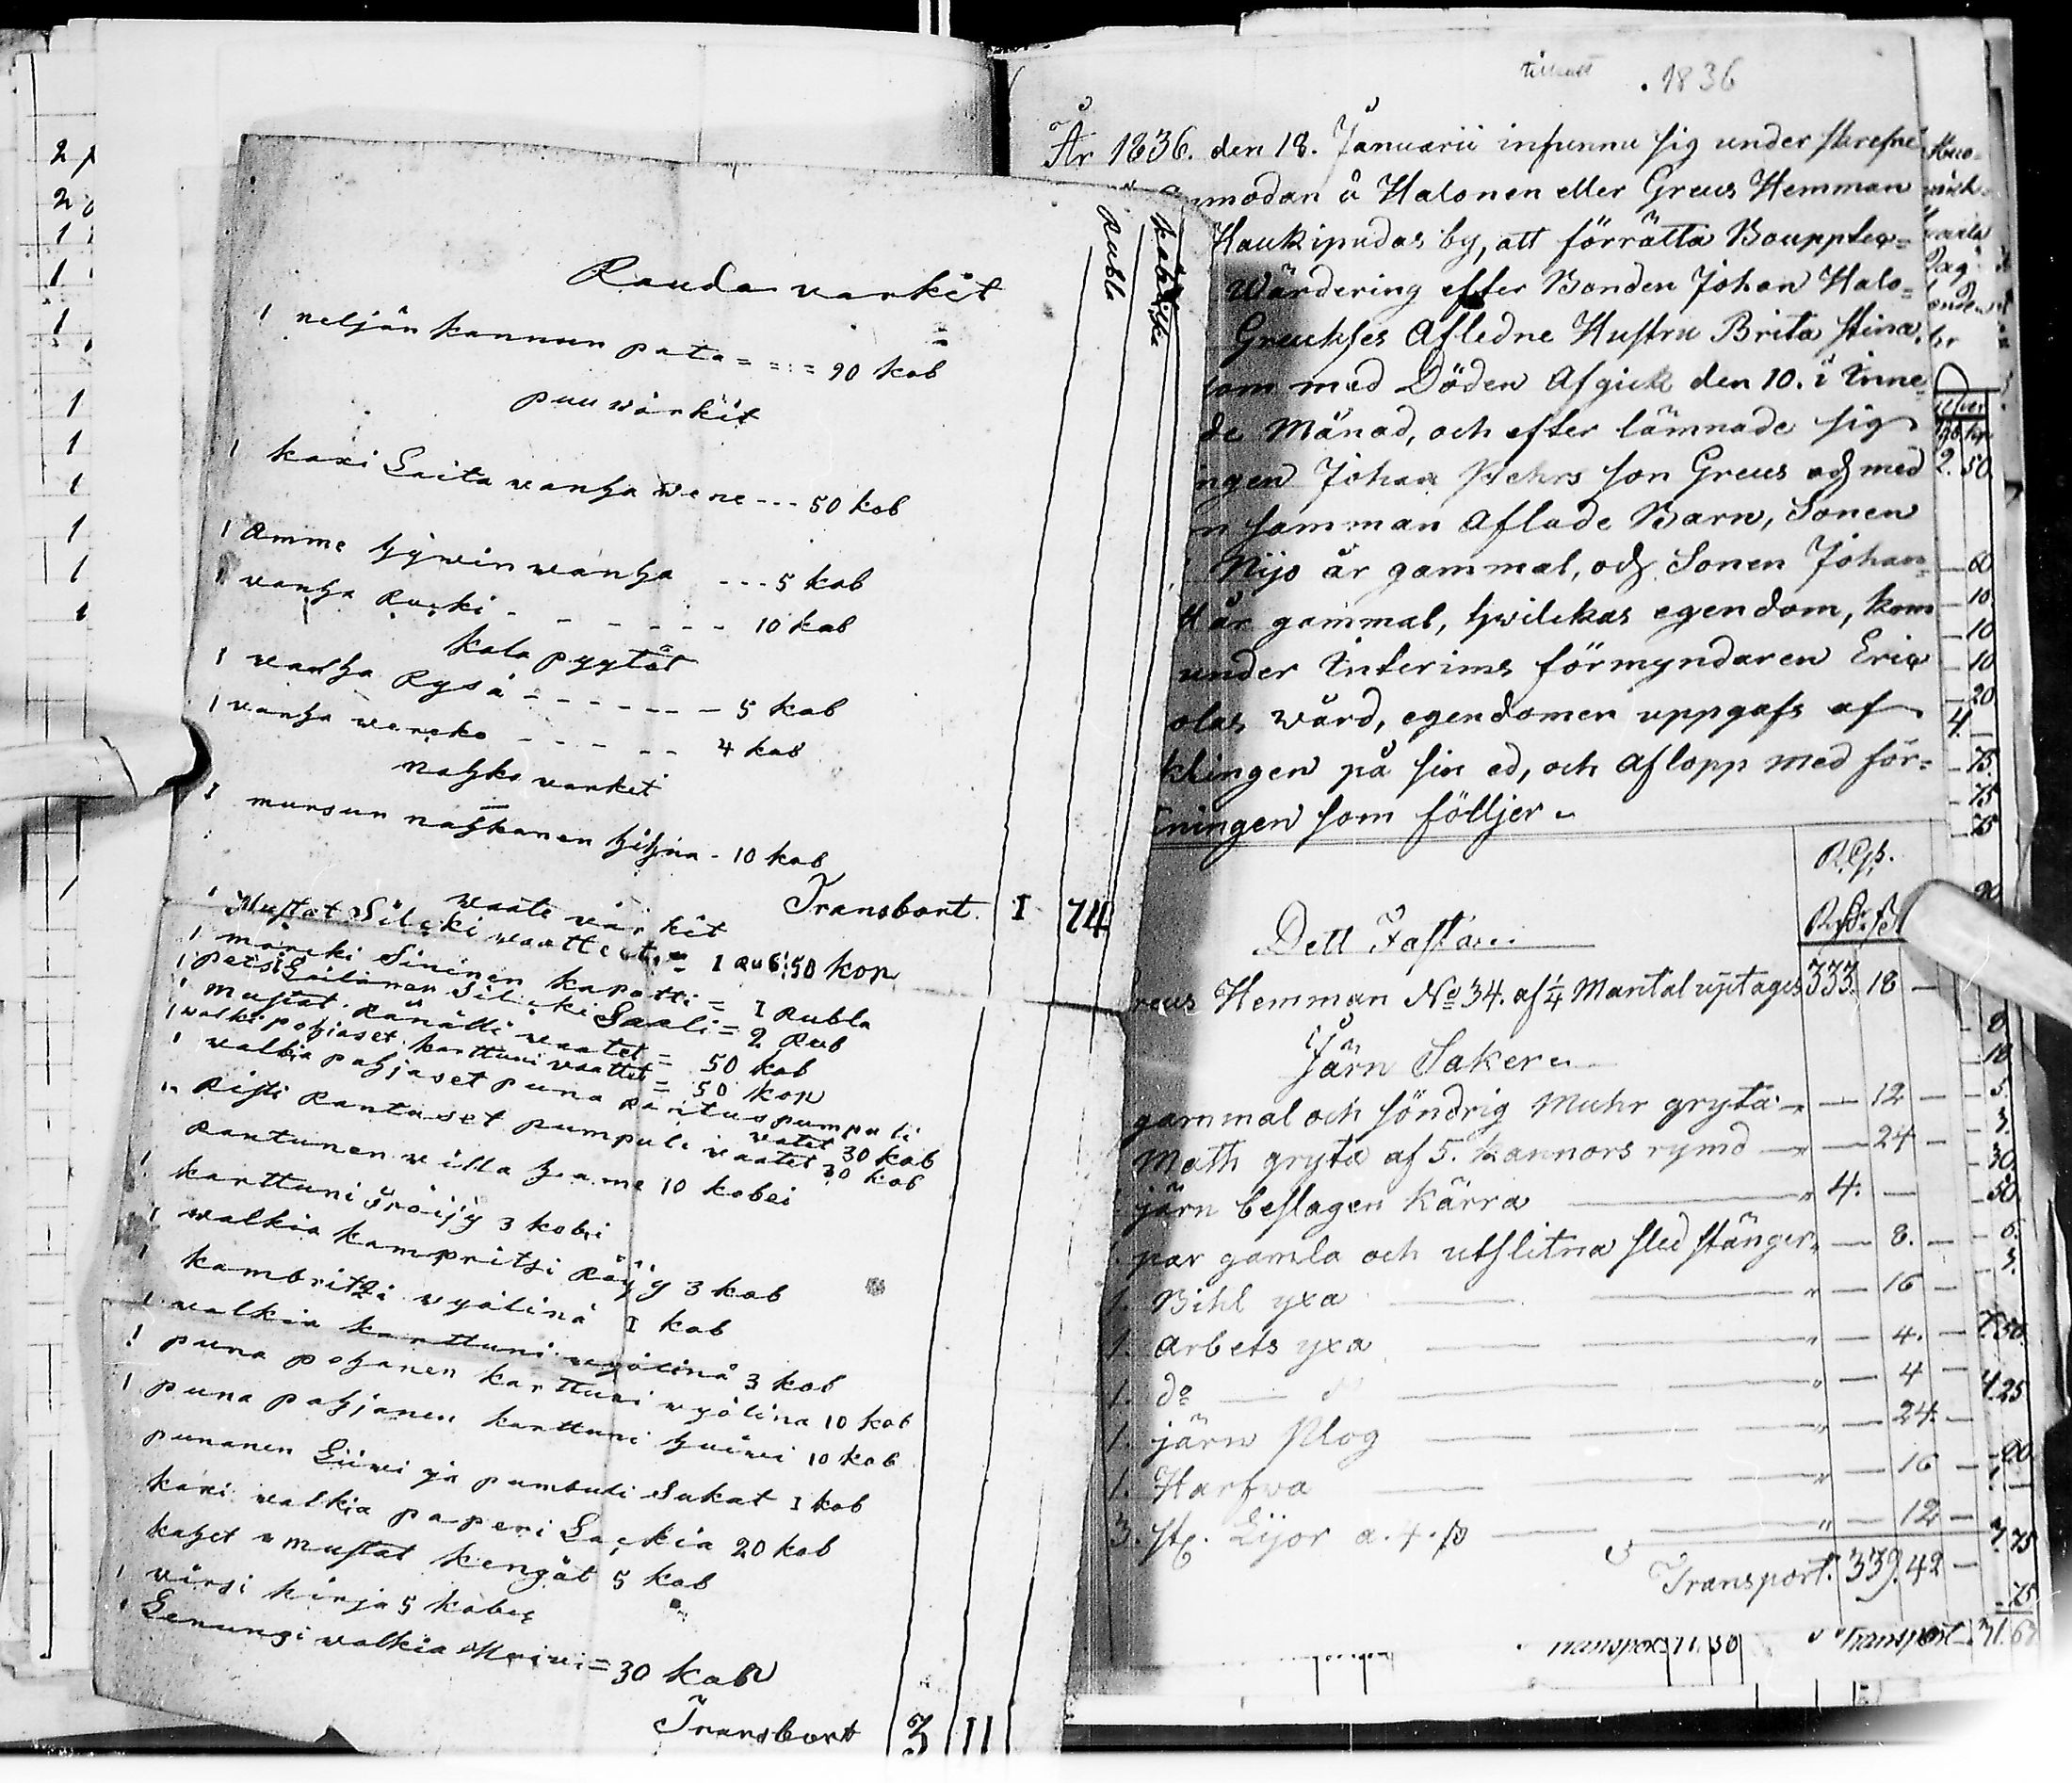 Rubla
kabeikka
Rauda varkit
1 neljän kannun pata = = : = 90 kob
puu värkit
1 kaxi Laita vanha vene --- 50 kob
1 Amme hywin wanha --- 5 kob
1 vanha Rucki - - - - - - 10 kob
kala pyytöt
1 vanha Rysä - - - - - - 5 kob
1 vanha vercko - - - - - 4 kob
nahka varkit
1 mursun nahkanen hihna - 10 kob
Transbort. I 74
waate värkit
1 Mustat Silcki waattet = 1 Rub: 50 kop
1 märcki Sininen kapotti = I Rubla
1 Silicki Saali = 2 Rub
1 Mustat Ränätti waatet = 50 kob
1 valkipohjaset karttuni waattet = 50 kop
1 valkia pohjaset puna Raitus pumpuli
vatet 30 kob
" Risti Rantuset pumpuli vaatet 30 kob
Rantunen willa hame 10 kobei
1 karttuni Tröijy 3 kobei
1 walkia kampritsi Röijy 3 kob
1 kambritzi vyölinä I kob
1 valkia karttuni vyölinä 3 kob
1 puna pohanen karttuni vyölinä 10 kob
1 puna pohjanen karttuni huivi 10 kob
punanen Liivi ja pumbuli Sukat I kob
kaxi valkia paperi Lackia 20 kob
kahet mustat kengät 5 kob
1 virsi kirja 5 kobeg
1 Genungi valkia = 30 kob
Transbort 3 11
1836
År 1836. den 18. Januarii infunnu sig under skrefne
å Halonen eller Greus Hemman
Haukipudas by, att förrätta Bouppte=
Wärdering effer Bonden Johan Halo=
Greuhses Afledne Hustru Brita Stina,
som med Döden Afgick den 10. i Inne
de Månad, och efter lämnade sig
ngen Johan Pehrs son Greus och med
n samman aflade Barn, Sonen
Nijo år gammal, och Sonen Johan=
tt år gammal, hwilckas egendom, kom
under Interims förmyndaren Eric
olas wård, egendomen uppgafs af
klingen på sin ed, och aflopp med för=
ningen som följer
Rgs.
Dett Fasta
reus Hemman No 34. af 1/4 Mantal uptages 333. 18 —
Järn Saker
gammal och söndrig Muhr gryta " — 12 —
Math gryta af 5. kannors rymd — " — 24 —
järn beslagen Kärra — " 4. —
par gamla och utslitna sled stänger " — 8. —
1. Bihl yxa — " — 16 —
1. Arbets yxa — " — 4. —
1. do — " — 4 —
1. järn Plog — " — 24. —
1. Harfva — " — 16 —
3. st. Lijor a. 4. — " — 12 —
Transport. 339. 42 —
Transport 11.50
Transport 31.67